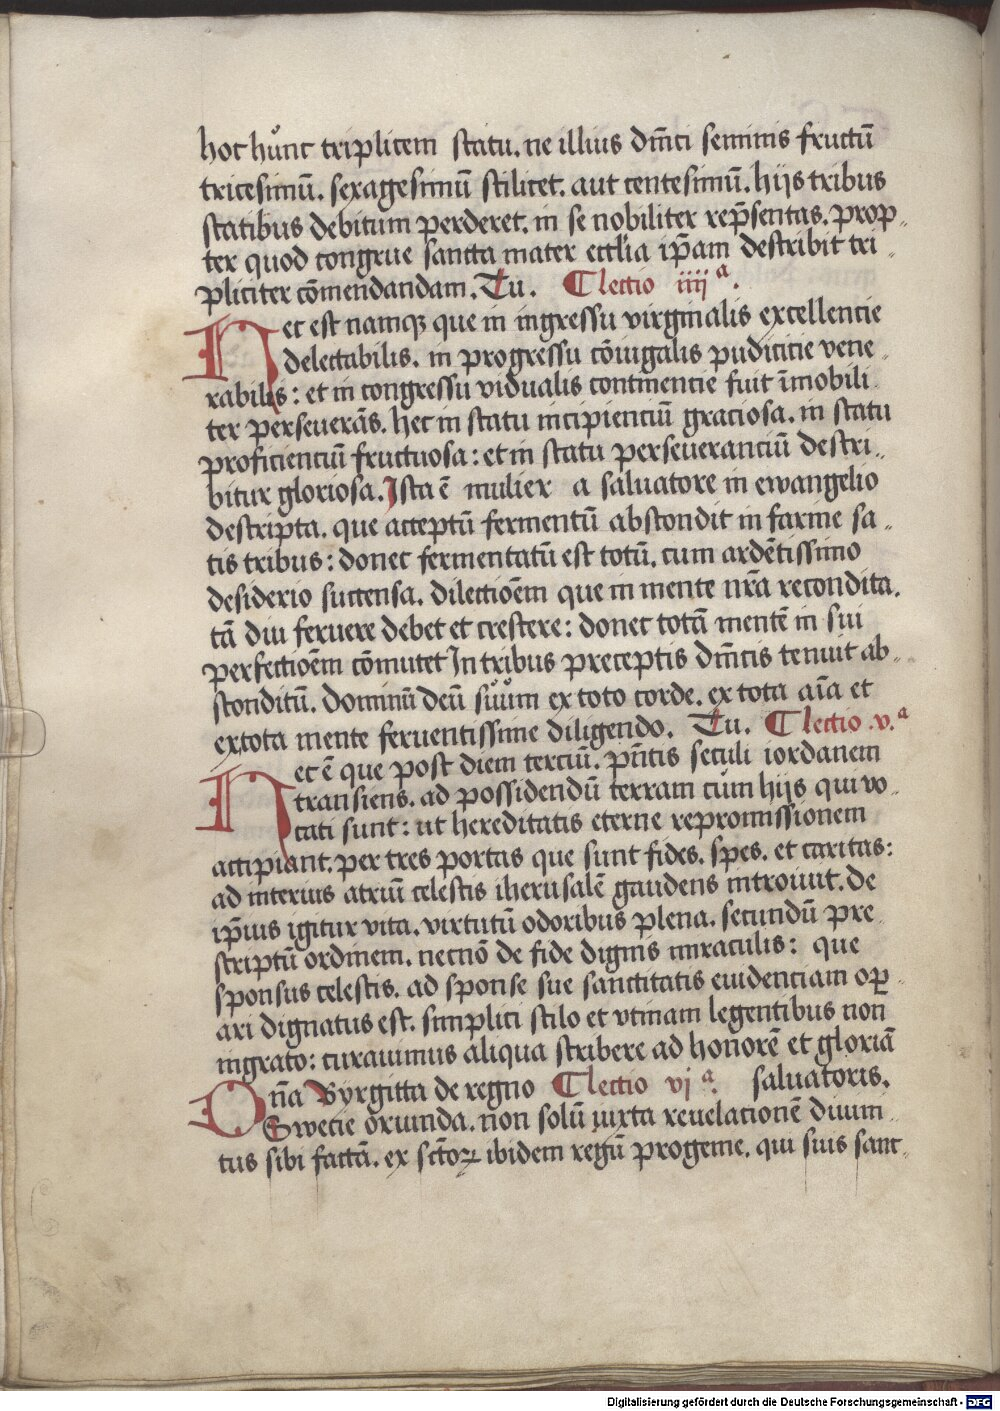 hoc hu̇nc triplicem statu. ne illius dn̄ici seminis fructū
tricesimū. sexagesimū scilicet. aut centesimū. hijs tribus
statibus debitum perderet. in se nobiliter rep̄sentas. prop-
ter quod congrue sancta mater eccl̄ia ip̄am describit tri-
pliciter cōmendandam. Tu. Lectio iiijᵃ.
Hec est namqꝫ que in ingressu virginalis excellencie
delectabilis. in progressu cōiugalis pudicicie vene-
rabilis: et in congressu vidualis continencie fuit īmobili
ter perseuerās. hec in statu incipienciū graciosa. in statu
proficienciū fructuosa: et in statu perseuerancium descri-
bitur gloriosa. Ista ē mulier a saluatore in ewangelio
descripta. que acceptū fermentū abscondit in farine sa-
tis tribus: donec fermentatū est totū. cum ardētissimo
desiderio succensa. dilectioēm que in mente nr̄a recondita.
tā diu feruere debet et crescere: donec totā mentē in sui
perfectioēm cōmutet In tribus preceptis dn̄icis tenuit ab-
sconditū. dominū deū suum ex toto corde. ex tota aīa et
ex tota mente feruentissime diligendo. Tu. Lectio .v.ᵃ
Hec ē que post diem terciū. p̄ntis seculi iordanem
transiens. ad possidendū terram cum hijs qui vo-
cati sunt: ut hereditatis eterne repromissionem
accipiant. per tres portas que sunt fides. spes. et caritas:
ad interius atriū celestis iherusalē gaudens introiuit. de
ip̄ius igitur vita. virtutū odoribus plena. secundū pre-
scriptū ordinem. necnō de fide dignis miraculis: que
sponsus celestis. ad sponse sue sanctitatis euidenciam oꝑ-
ari dignatus est. simplici stilo et vtinam legentibus non
ingrato: curauimus aliqua scribere ad honorē et gloriā
Dn̄a Byrgitta de regno Lectio vjᵃ. saluatoris.
Swecie oriunda. non solū iuxta reuelationē diuini-
tus sibi factā. ex sc̄toꝝ ibidem regū progenie. qui suis sanc-
Digitalisierung gefördert durch die Deutsche Forschungsgemeinschaft - DFG